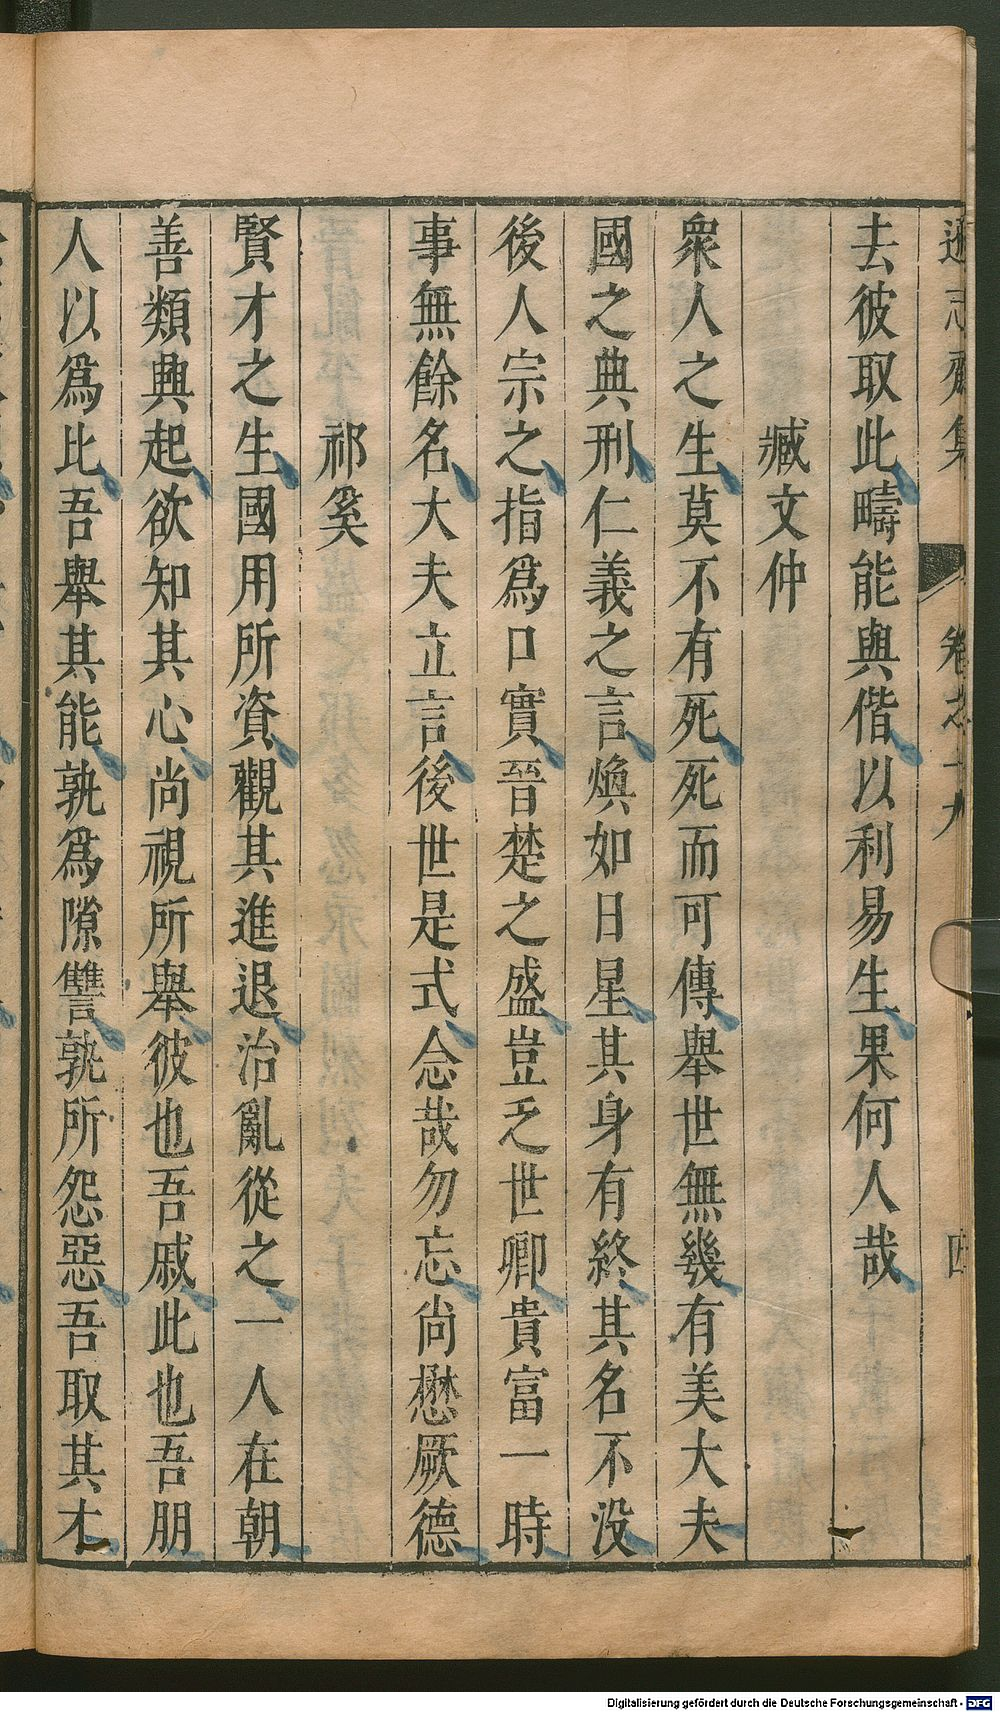 遜志齋集 卷之十九 四
去彼取此疇能與偕以利易生果何人哉
臧文仲
衆人之生莫不有死死而可傳舉世無幾有美大夫
國之典刑仁義之言煥如日星其身有終其名不没
後人宗之指爲口實晉楚之盛豈乏世卿貴富一時
事無餘名大夫立言後世是式念哉勿忘尚懋厥德
祁奚
賢才之生國用所資觀其進退治亂從之一人在朝
善類興起欲知其心尚視所舉彼也吾戚此也吾朋
人以爲比吾舉其能孰爲隙讐孰所怨惡吾取其才
Digitalisierung gefördert durch die Deutsche Forschungsgemeinschaft - DFG